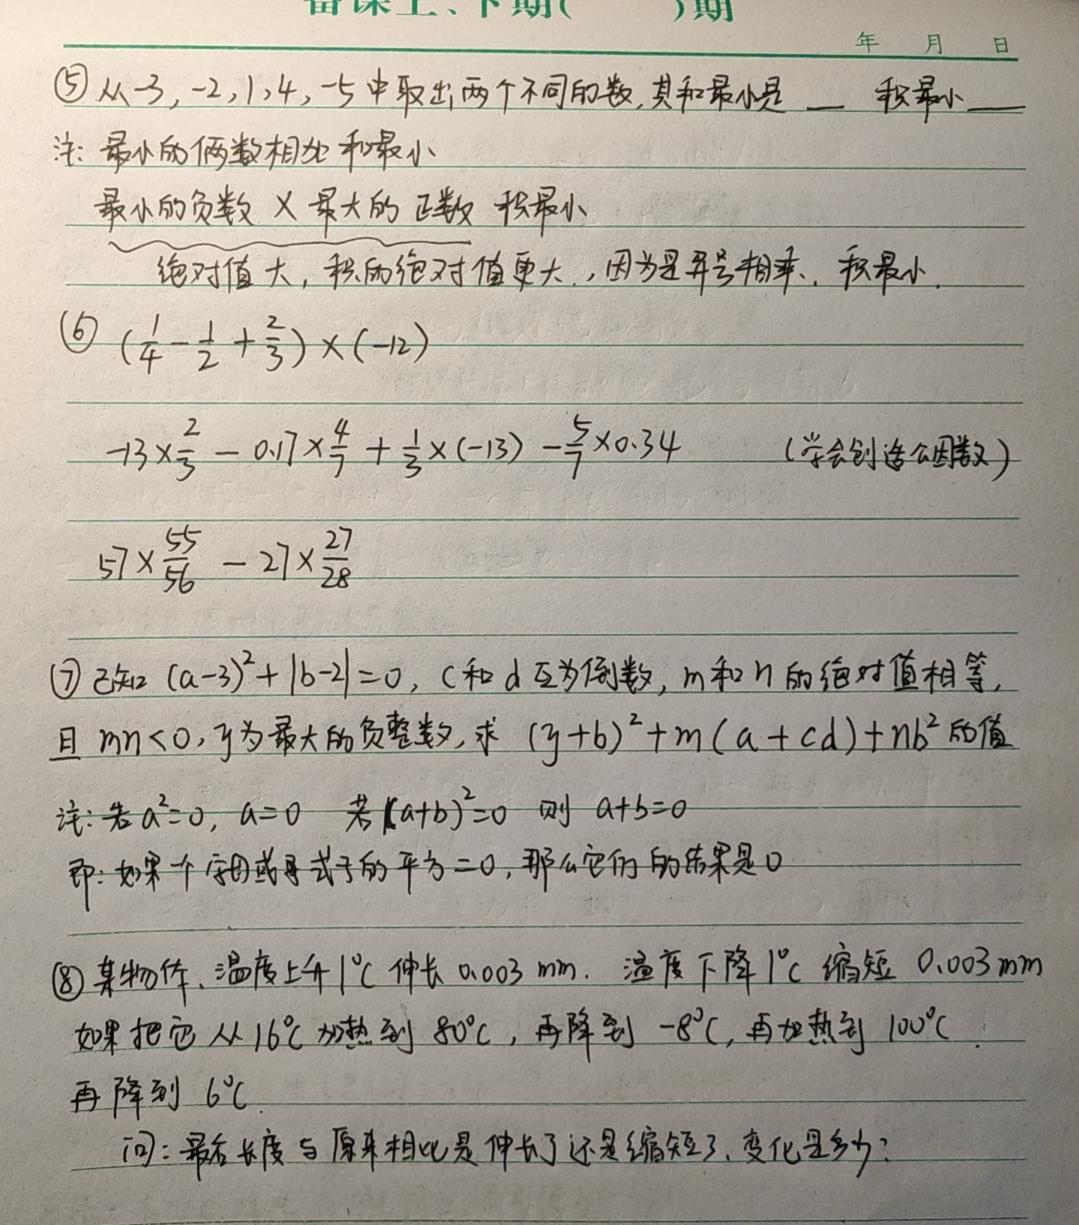 备课上、下期( )期
年 月 日
⑤ 从-3,-2,1,4,-5中取出两个不同的数,其和最小是 __ 积最小 __
注: 最小的俩数相加 和最小
最小的负数 × 最大的正数 积最小
绝对值大,积的绝对值更大.,因为是异号相乘、积最小.
⑥ (1/4 - 1/2 + 2/3) × (-12)
-13 × 2/3 - 0.17 × 4/7 + 1/3 × (-13) - 5/7 × 0.34 (学会创造公因数)
57 × 55/56 - 27 × 27/28
⑦ 已知 (a-3)² + |b-2| = 0, c和d互为倒数, m和n的绝对值相等,
且 mn<0, y为最大的负整数, 求 (y+b)² + m(a+cd) + nb² 的值
注: 若a²=0, a=0 若(a+b)²=0 则 a+b=0
即: 如果一个字母或式子的平方=0, 那么它们的结果是0
⑧ 某物体、温度上升1℃ 伸长 0.003 mm. 温度下降1℃ 缩短 0.003mm
如果把它从16℃加热到 80℃, 再降到 -8℃, 再加热到 100℃.
再降到 6℃.
问: 最后长度与原来相比是伸长了还是缩短了、变化是多少?